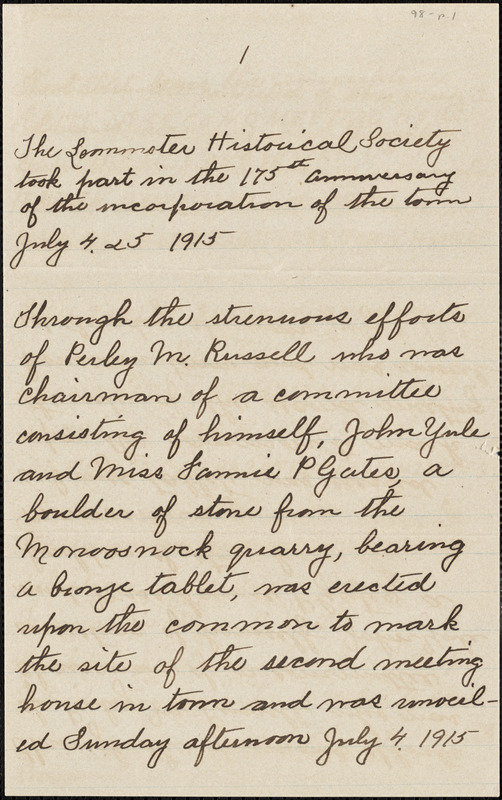 98-p.1
1
The Leominster Historical Society
took part in the 175th anniversary
of the incorporation of the town
July 4. & 5 1915
Through the strenuous efforts
of Perley M. Russell who was
chairman of a committee
consisting of himself, John Yule
and Miss Fannie P Gates, a
boulder of stone from the
Monoosnock quarry, bearing
a bronze tablet, was erected
upon the common to mark
the site of the second meeting
house in town and was unveil-
ed Sunday afternoon July 4. 1915